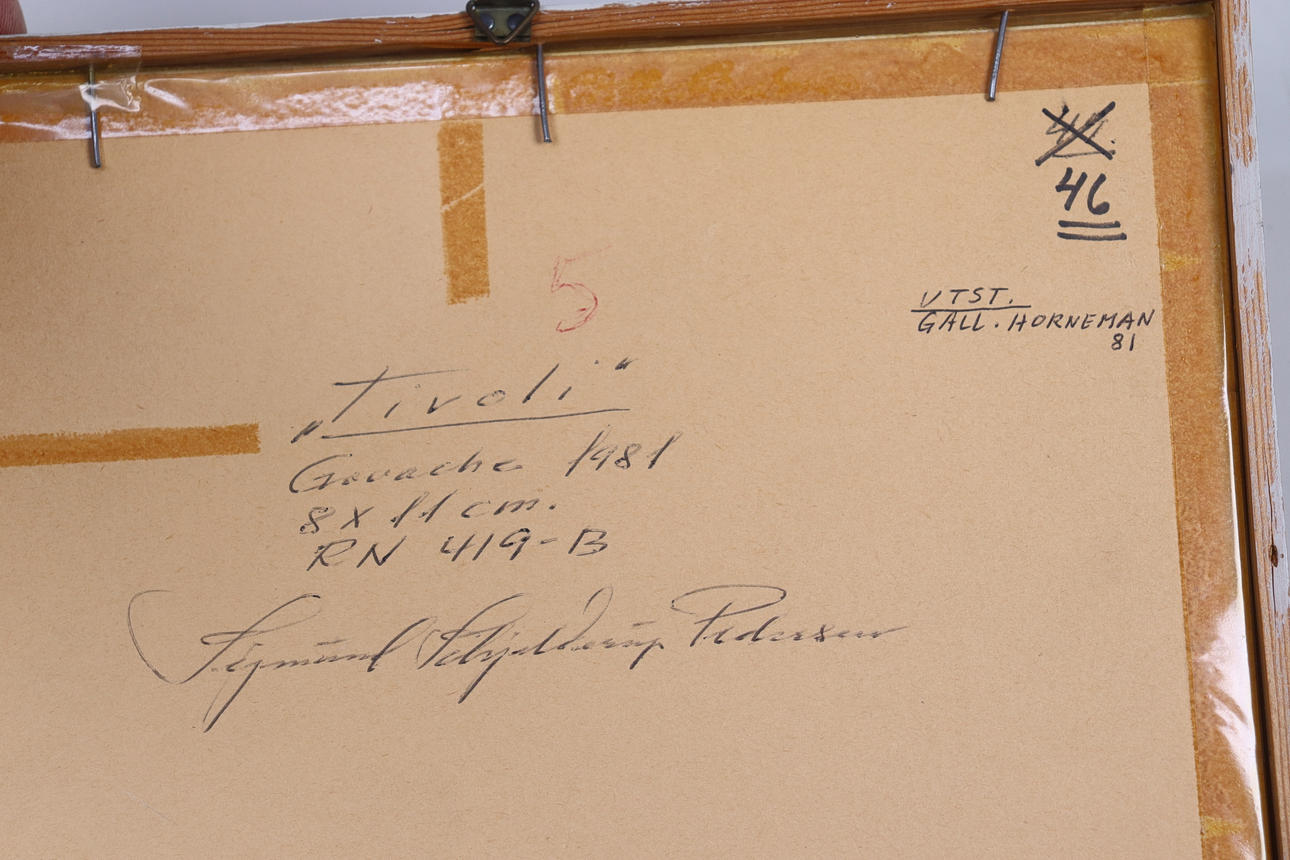 46
VTST.
GALL. HORNEMAN
81
5
„Tivoli"
Gouache 1981
8 x 11 cm.
RN 419-B
Sigmund Schjelderup Pedersen